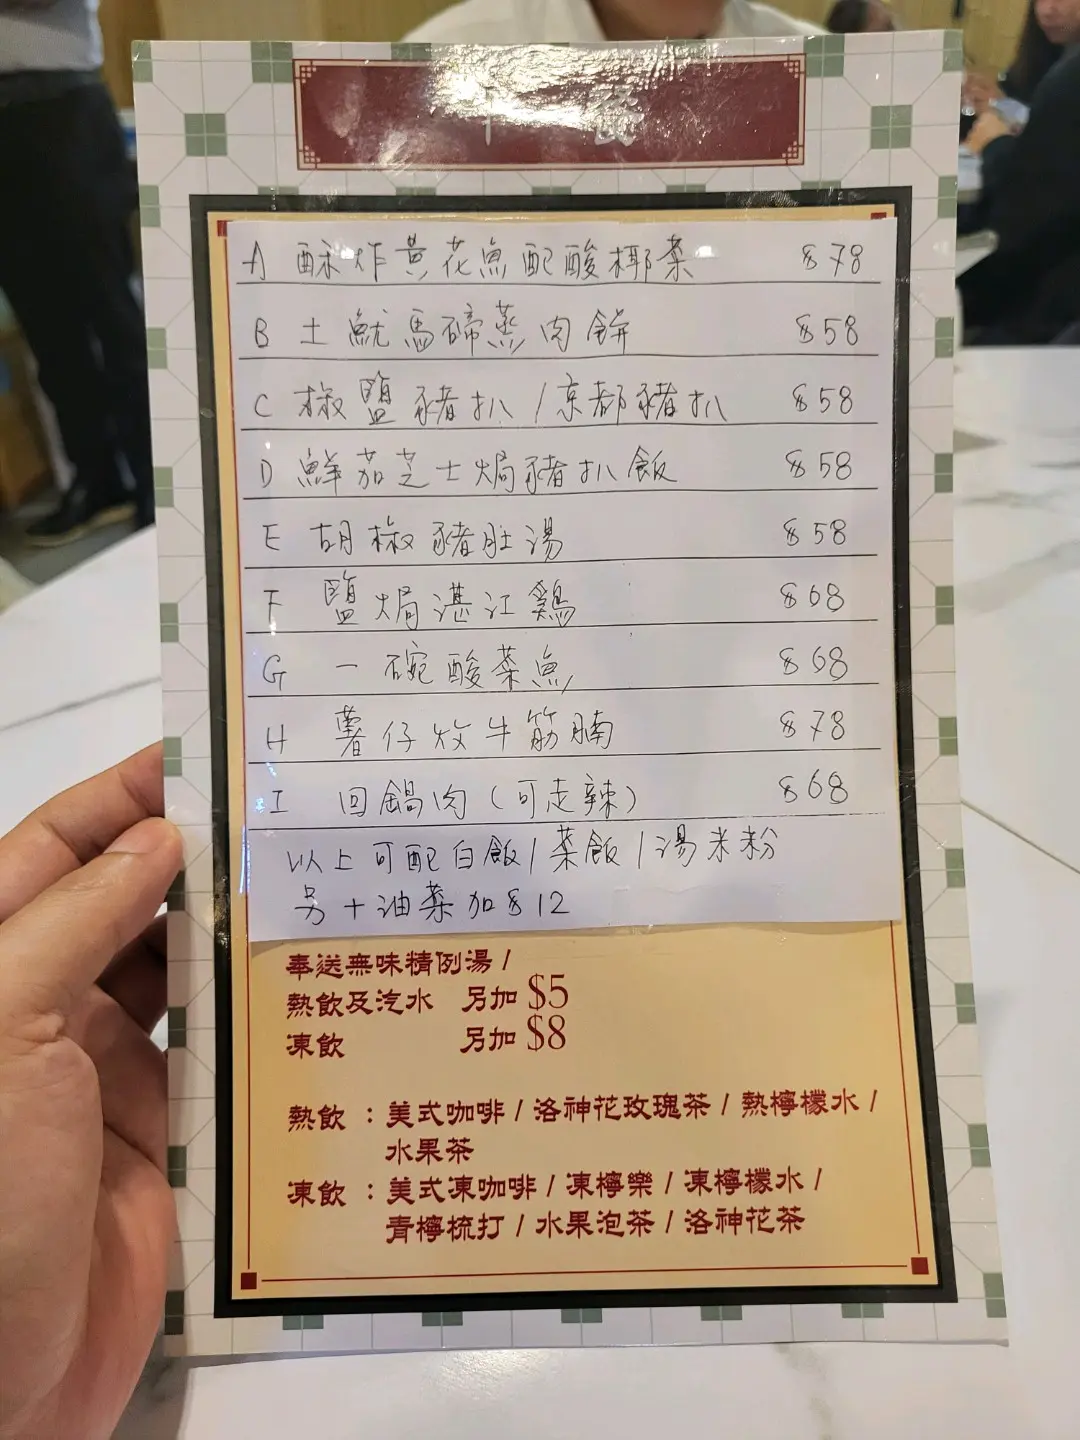 餐
A 酥炸黄花魚配酸椰菜 $78
B 土魷馬碲蒸肉餅 $58
C 椒鹽豬扒/京都豬扒 $58
D 鮮茄芝士焗豬扒飯 $58
E 胡椒豬肚湯 $58
F 鹽焗湛江鷄 $68
G 一碗酸菜魚 $68
H 薯仔炆牛筋腩 $78
I 回鍋肉(可走辣) $68
以上可配白飯/菜飯/湯米粉
另+油菜加$12
奉送無味精例湯/
熱飲及汽水 另加 $5
凍飲 另加 $8
熱飲：美式咖啡/洛神花玫瑰茶/熱檸檬水/
水果茶
凍飲：美式凍咖啡/凍檸樂/凍檸檬水/
青檸梳打/水果泡茶/洛神花茶